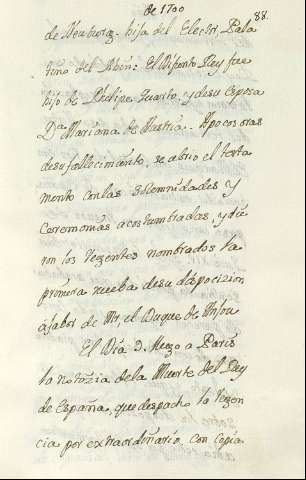 de 1700
88.
de Neuburg. hija del Elector, Pala
tino del Rhin: El Difunto Rey fue
hijo de Phelipe Quarto, y de su Esposa
Dª Mariana de Austria. A pocas oras
de su fallecimiento, se abrio el testa
mento con las Solemnidades y
Ceremonias acostumbradas, y die
ron los Regentes nombrados la
primera nueba de su disposizion
à saber de Mr, el Duque de Anjou
El Dia 9. llego a Paris
la notozia de la Muerte del Rey
de España, que despacho la Regen
cia por extraordinario, con Copia